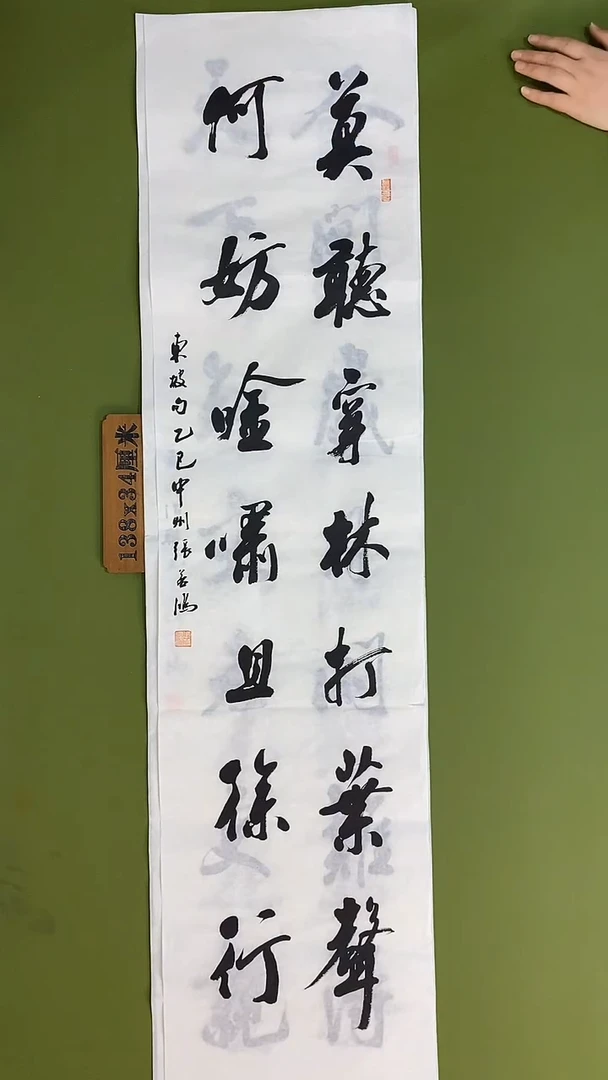 莫聽穿林打葉聲
何妨唫嘯且徐行
東坡句乙巳中州張
138x34厘米